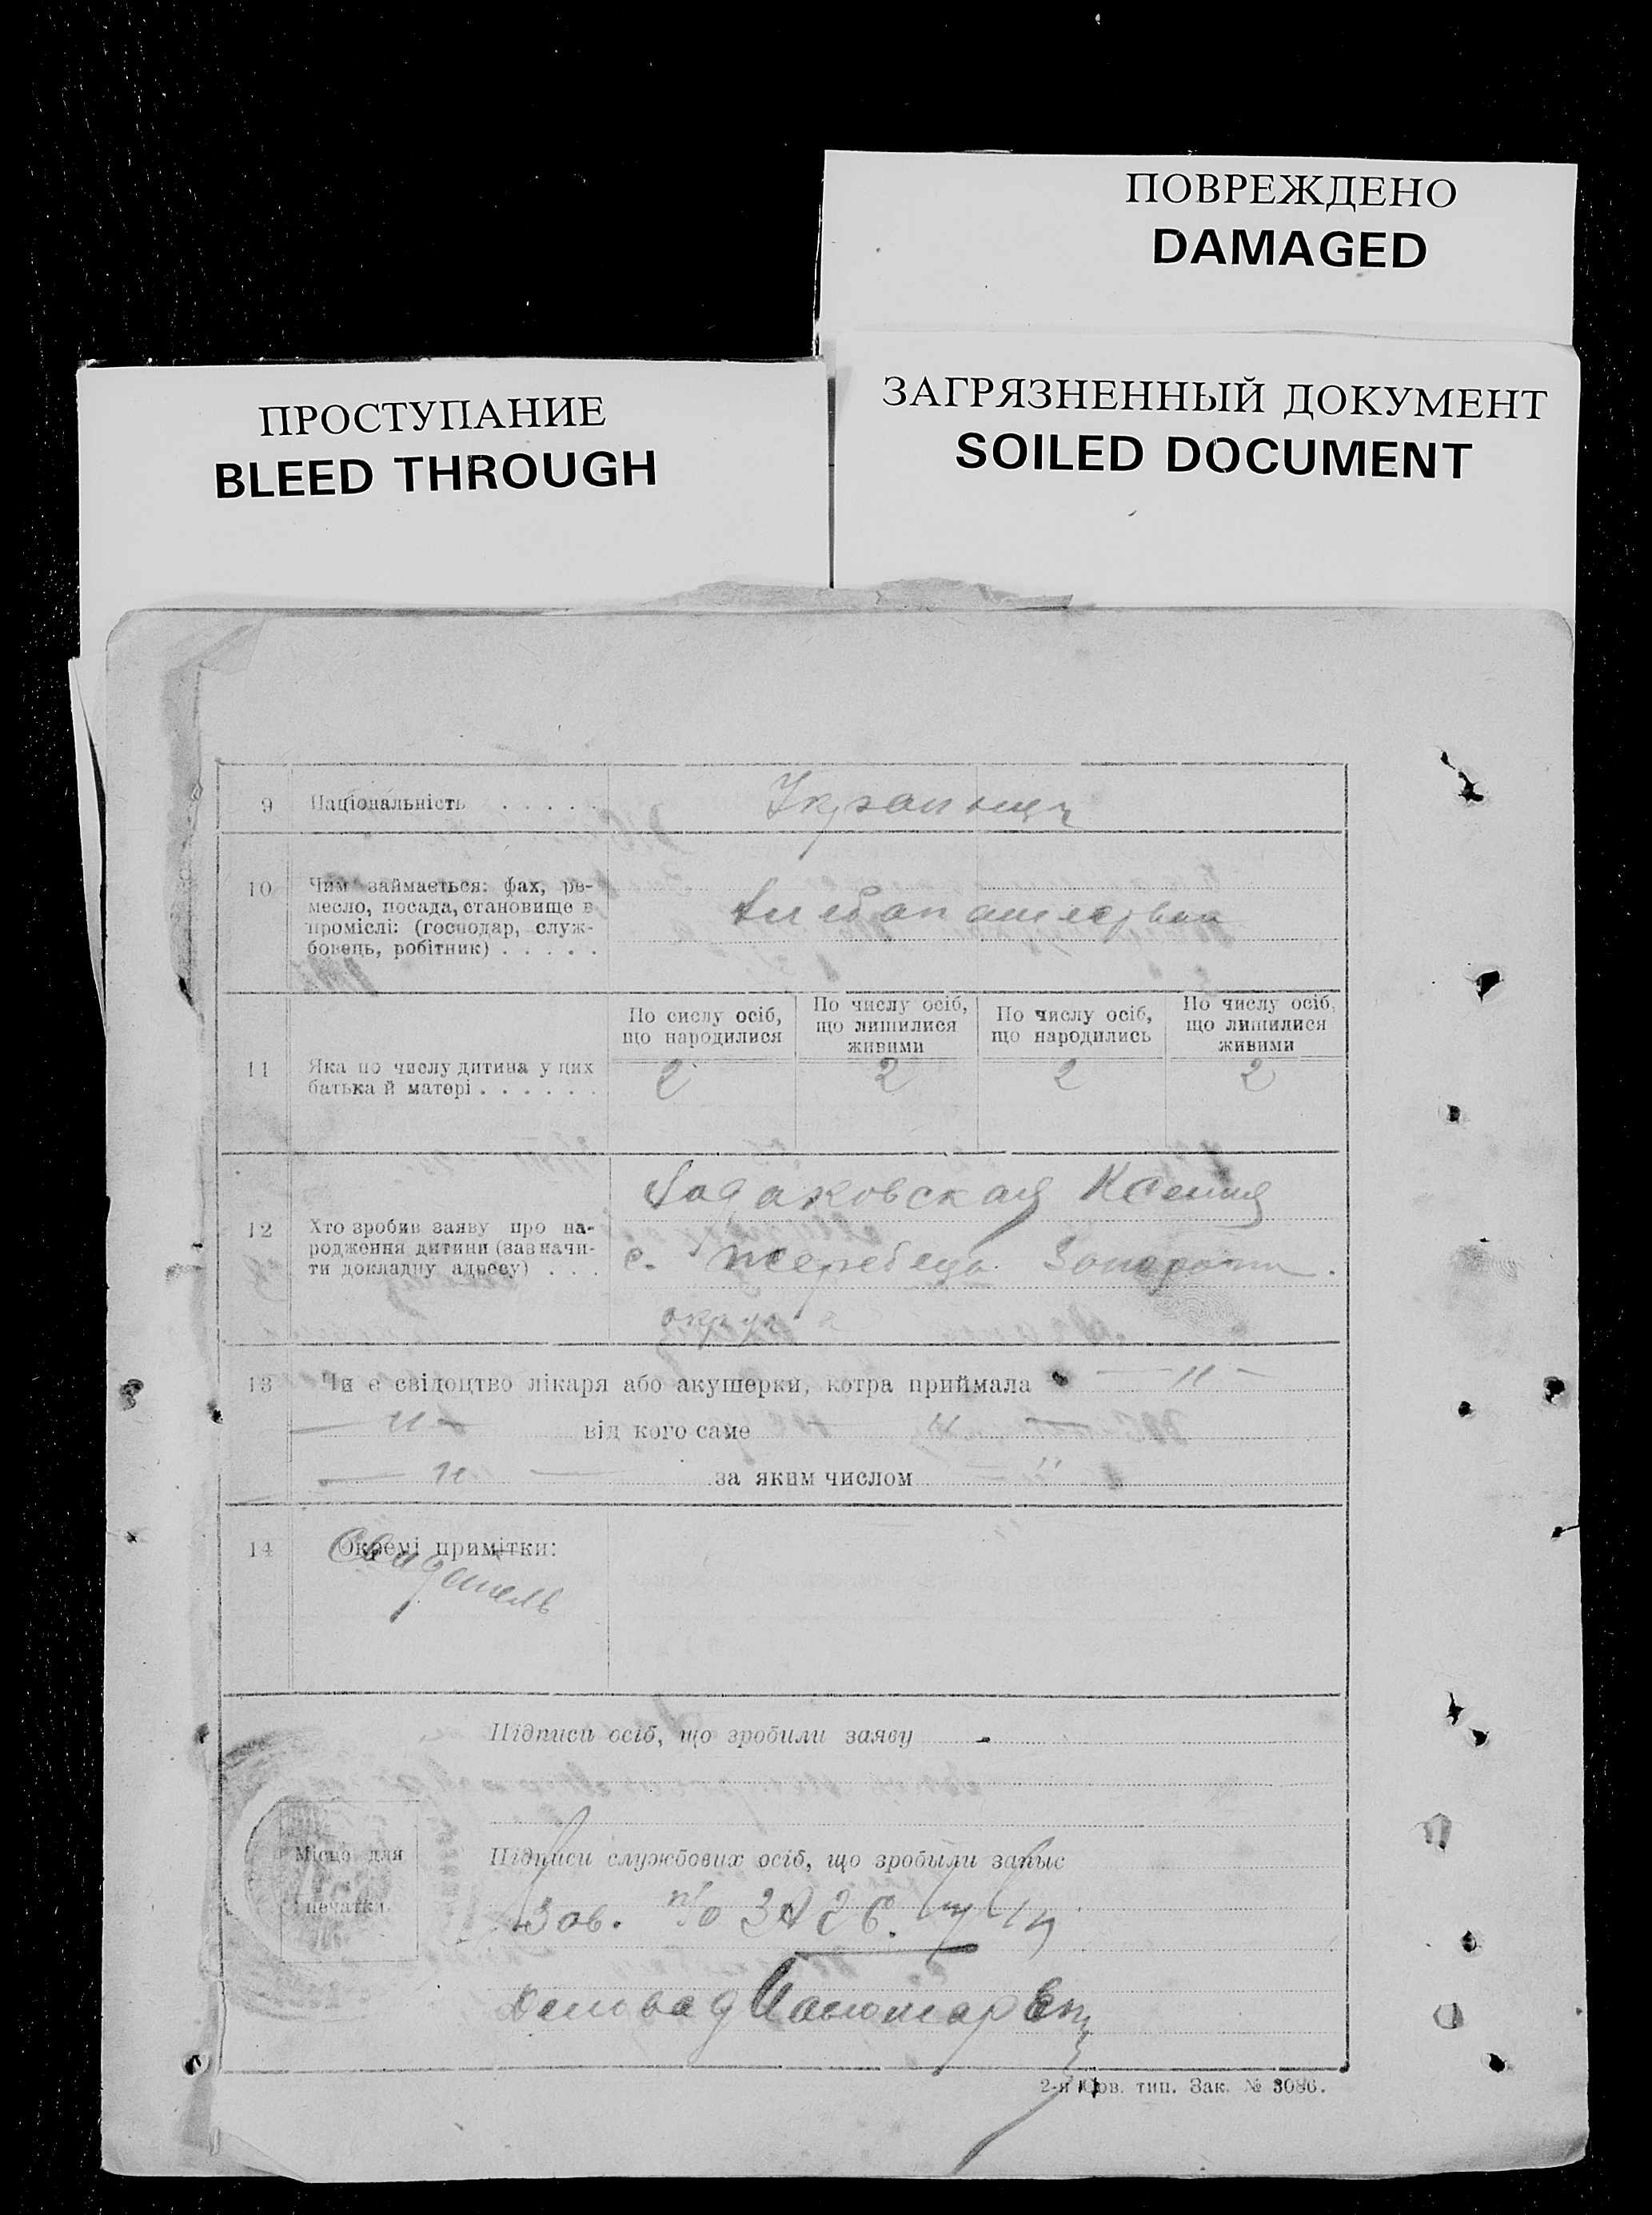 ПОВРЕЖДЕНО
DAMAGED
ПРОСТУПАНИЕ
BLEED THROUGH
ЗАГРЯЗНЕННЫЙ ДОКУМЕНТ
SOILED DOCUMENT
9 Національність . . . . .
10 Чим займається: фах, ре-
месло, посада, становище в
проміслі: (господар, служ-
бовець, робітник) . . . . .
По сислу осіб,
що народилися
По числу осіб,
що лишилися
живими
По числу осіб,
що народились
По числу осіб,
що лишилися
живими
11 Яка по числу дитина у цих
батька й матері . . . . . .
2 2 2 2
12 Хто зробив заяву про на-
родження дитини (зазначи-
ти докладну адресу) . . .
Ксения
с. Жеребец
округа
13 Чи є свідоцтво лікаря або акушерки, котра приймала — " —
— " — від кого саме — " —
— " — за яким числом — " —
14 Окремі примітки:
Свидетель
Підписи осіб, що зробили заяву
Місце для
печатки
Підписи службових осіб, що зробыли запыс
Зав.
2-я Сов. тип. Зак. № 3086.